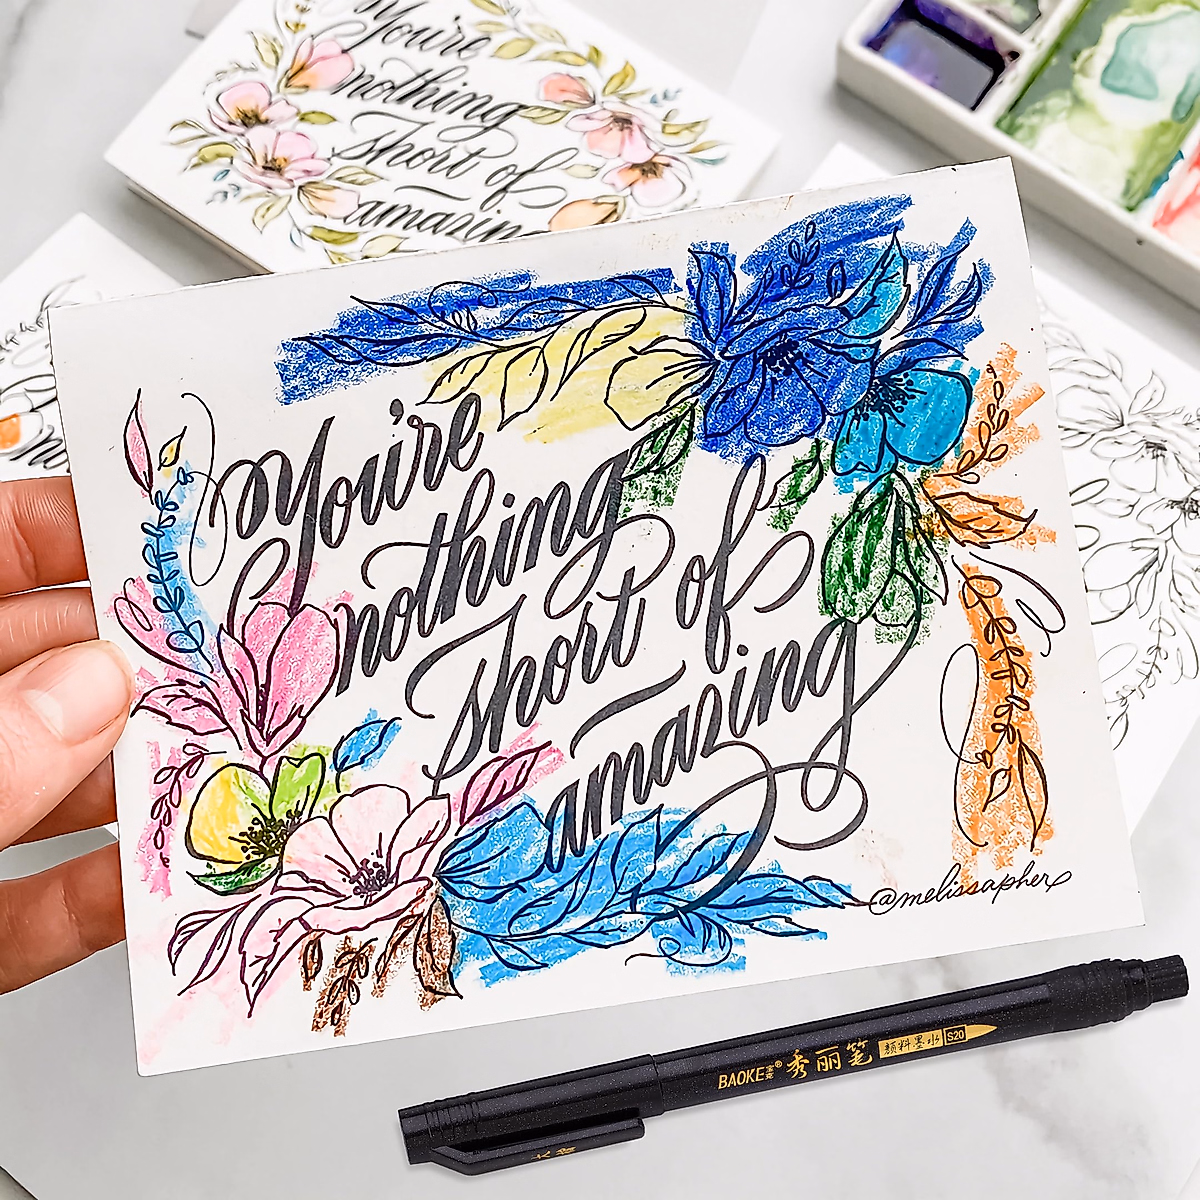 You're
nothing
short of
amazing
You're
nothing
short of
amazing
@melissapher
BAOKE宝克® 秀丽笔 颜料墨水 S20
大楷